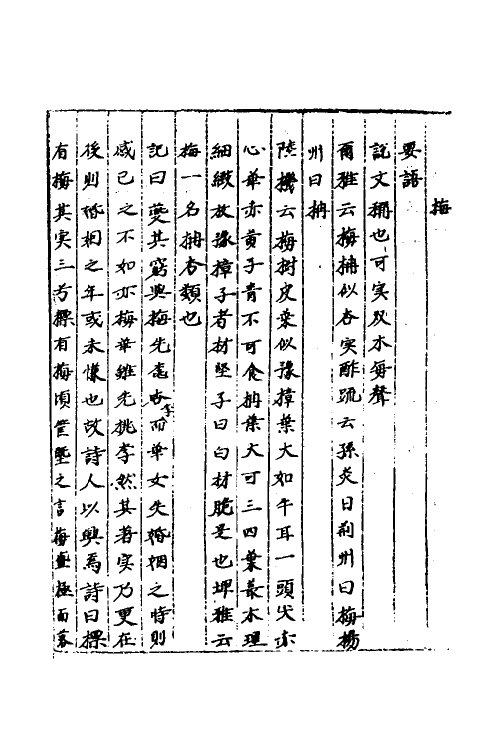 梅
要語
說文枏也可实从木每聲
爾雅云梅枏似杏实酢疏云孫炎曰荊州曰梅楊
州曰枏
陸機云梅樹皮葉似豫樟葉大如牛耳一頭尖赤
心華赤黄子青不可食枏葉大可三四葉叢木理
細緻於豫樟子者材堅子白白材脆是也埤雅云
梅一名枏杏類也
記曰蔓其窮與梅先春而華女失婚姻之時則
感已之不如亦梅華雖先桃李然其著实乃更在
後則婚姻之年或未愆也故詩人以興焉詩曰摽
有梅其实三兮摽有梅頃筐塈之言梅盡極而落